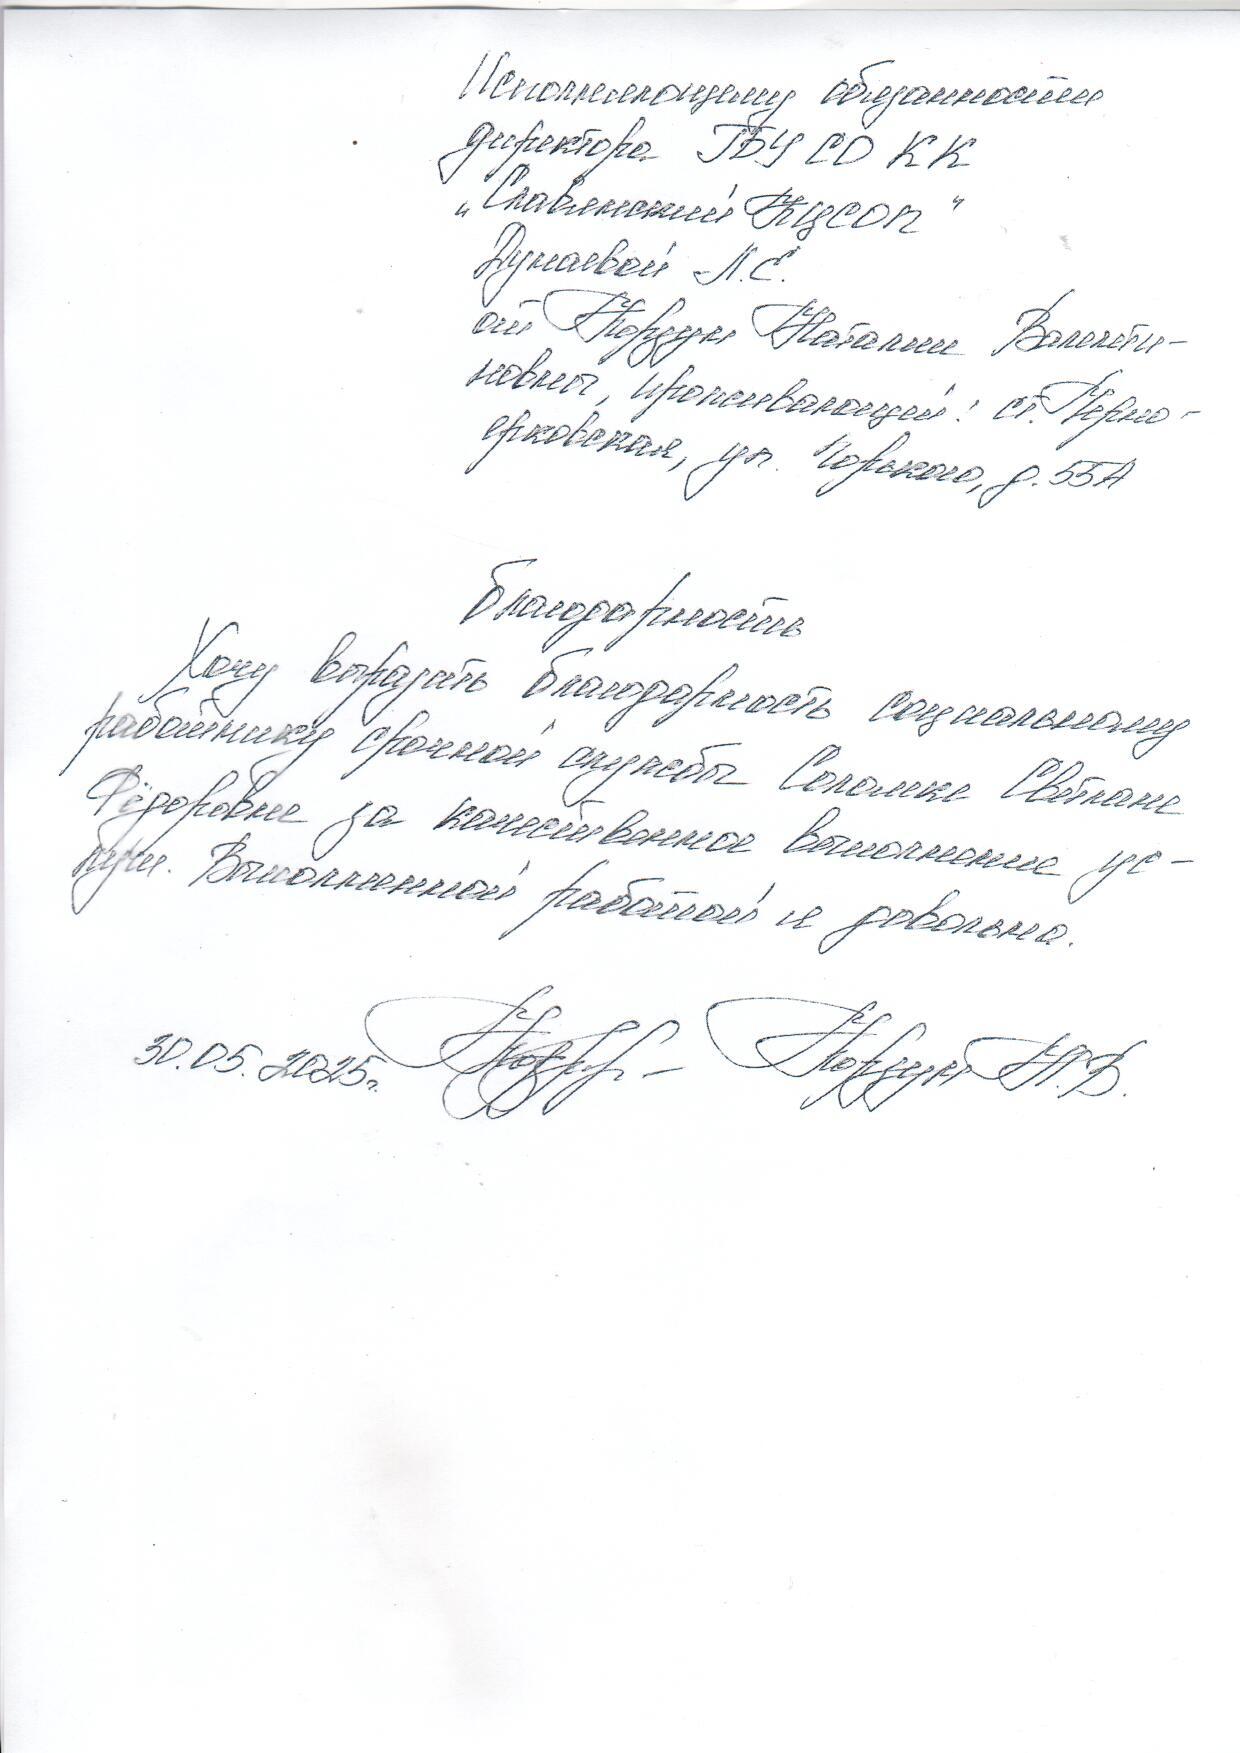 Исполняющему обязанности
директора ГБУ СО КК
„Славянский КЦСОН"
Дунаевой Л.С.
от Наталии Валенти-
новны, проживающей: ст. Черно-
ерковская, ул. Горького, д. 55А
Благодарность
Хочу выразить благодарность социальному
работнику срочной службы Соломке Светлане
Фёдоровне за качественное выполнение ус-
луги. Выполненной работой я довольна.
30.05.2025г. Н.В.